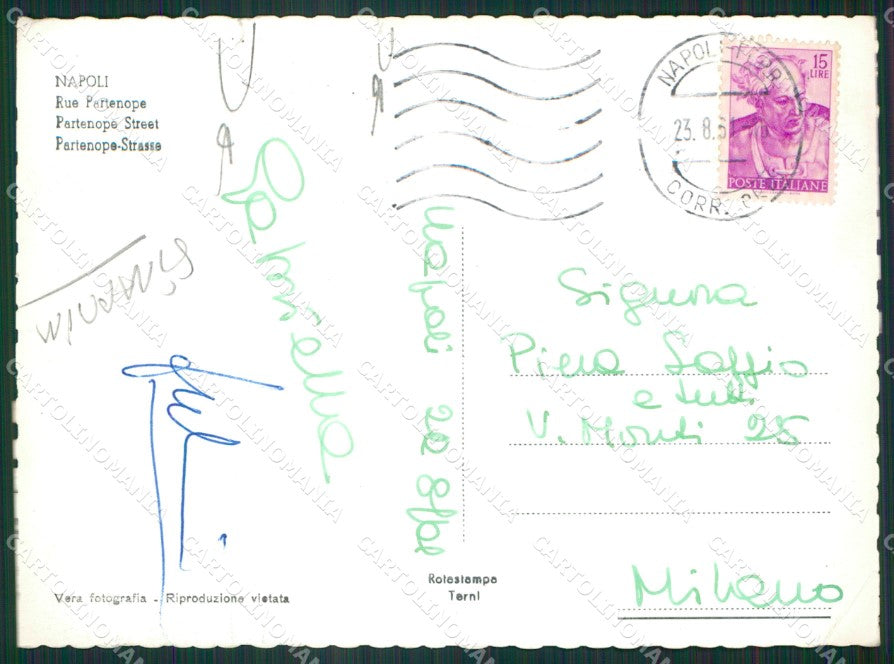 NAPOLI
Rue Partenope
Partenope Street
Partenope-Strasse
Gabriella
Napoli 22 8/61
NAPOLI FERR
23.8.6
CORR.
15
LIRE
POSTE ITALIANE
Signora
Piera Saffio
e tutti
V. Monti 25
Milano
Vera fotografia - Riproduzione vietata
Rotastampa
Terni
CARTOLINOMANIA